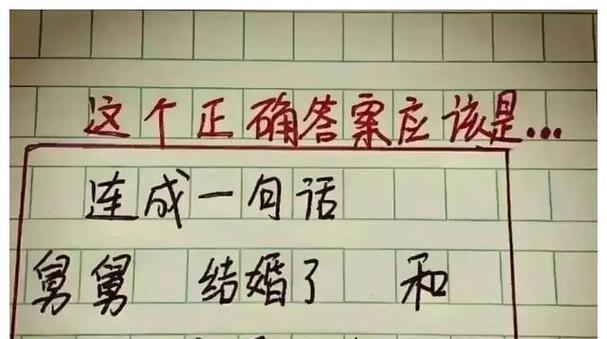 这个正确答案应该是...
连成一句话
舅舅 结婚了 和